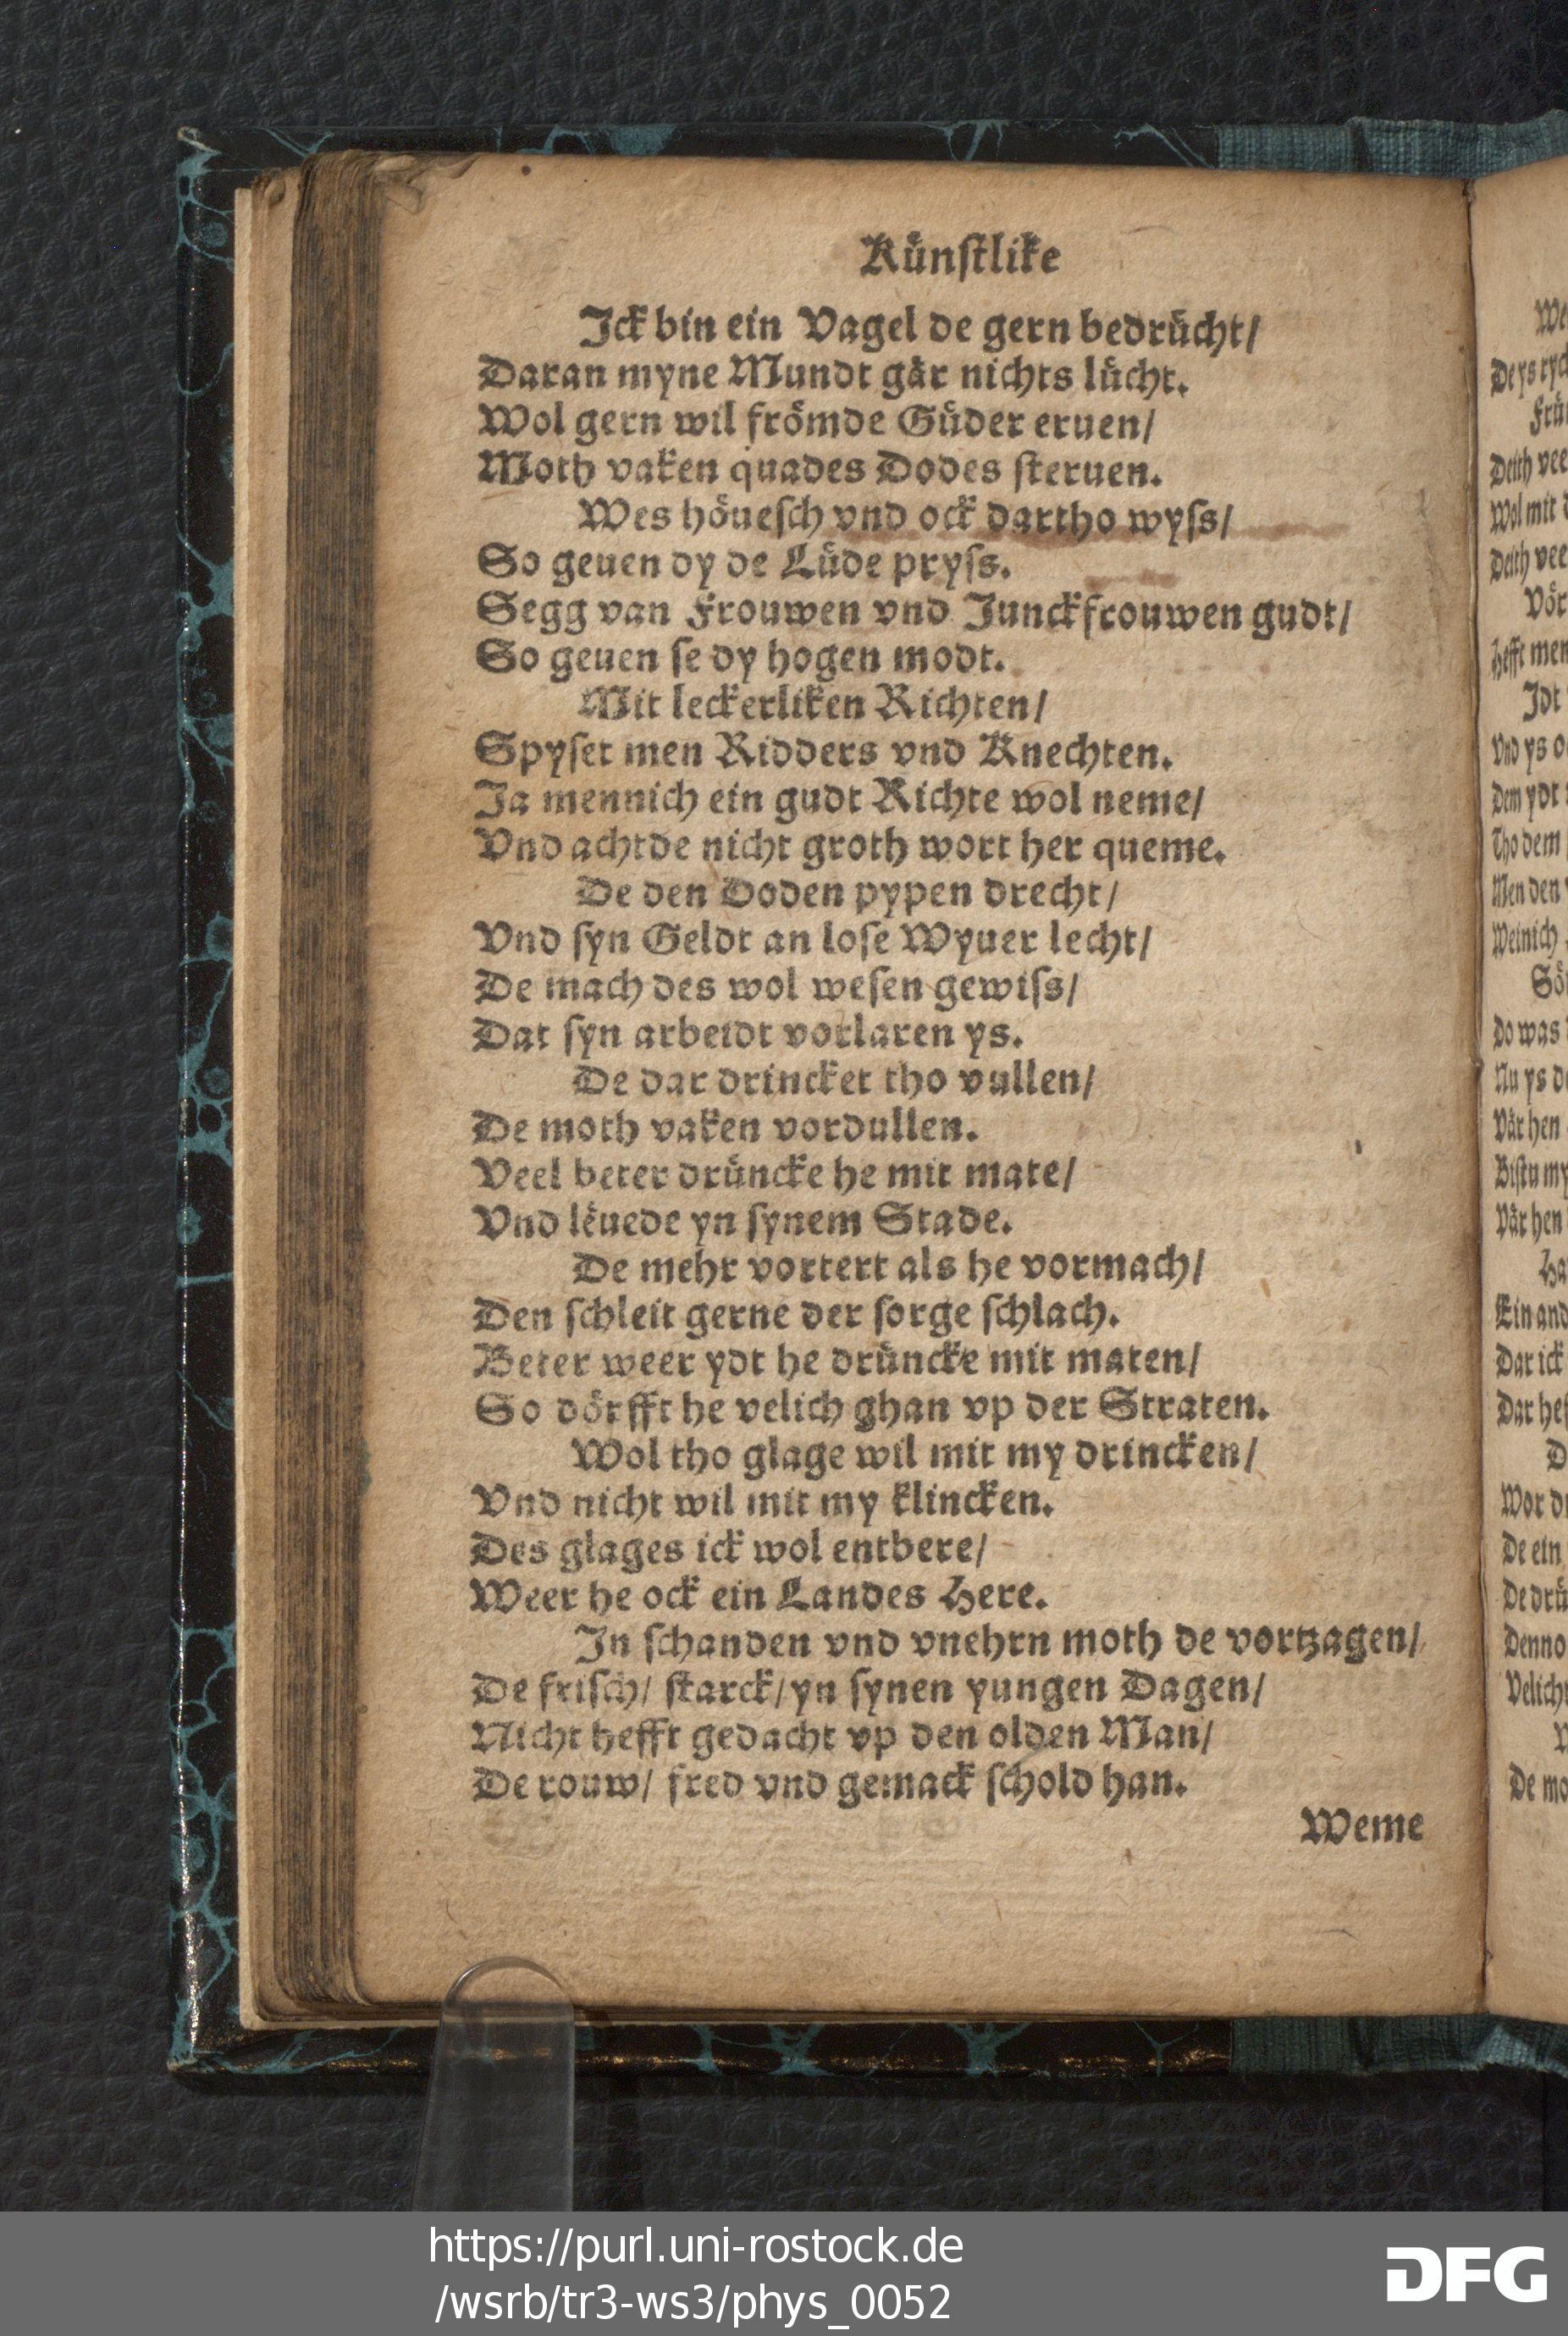 Kuͤnſtlike
Jck bin ein Vagel de gern bedruͤcht/
Daran myne Mundt gaͤr nichts luͤcht.
Wol gern wil froͤmde Guͤder eruen/
Moth vaken quades Dodes ſteruen.
Wes hoͤueſch vnd ock dartho wyſs/
So geuen dy de Luͤde pryſs.
Segg van Frouwen vnd Junckfrouwen gudt/
So geuen ſe dy hogen modt.
Mit leckerliken Richten/
Spyſet men Ridders vnd Knechten.
Ja mennich ein gudt Richte wol neme/
Vnd achtde nicht groth wort her queme.
De den Doden pypen drecht/
Vnd ſyn Geldt an loſe Wyuer lecht/
De mach des wol weſen gewiſs/
Dat ſyn arbeidt vorlaren ys.
De dar drincket tho vullen/
De moth vaken vordullen.
Veel beter druͤncke he mit mate/
Vnd leͤuede yn ſynem Stade.
De mehr vortert als he vormach/
Den ſchleit gerne der ſorge ſchlach.
Beter weer ydt he druͤncke mit maten/
So doͤrfft he velich ghan vp der Straten.
Wol tho glage wil mit my drincken/
Vnd nicht wil mit my klincken.
Des glages ick wol entbere/
Weer he ock ein Landes Here.
Jn ſchanden vnd vnehrn moth de vortzagen/
De friſch/ ſtarck/ yn ſynen yungen Dagen/
Nicht hefft gedacht vp den olden Man/
De rouw/ fred vnd gemack ſchold han.
Weme
https://purl.uni-rostock.de
/wsrb/tr3-ws3/phys_0052
DFG